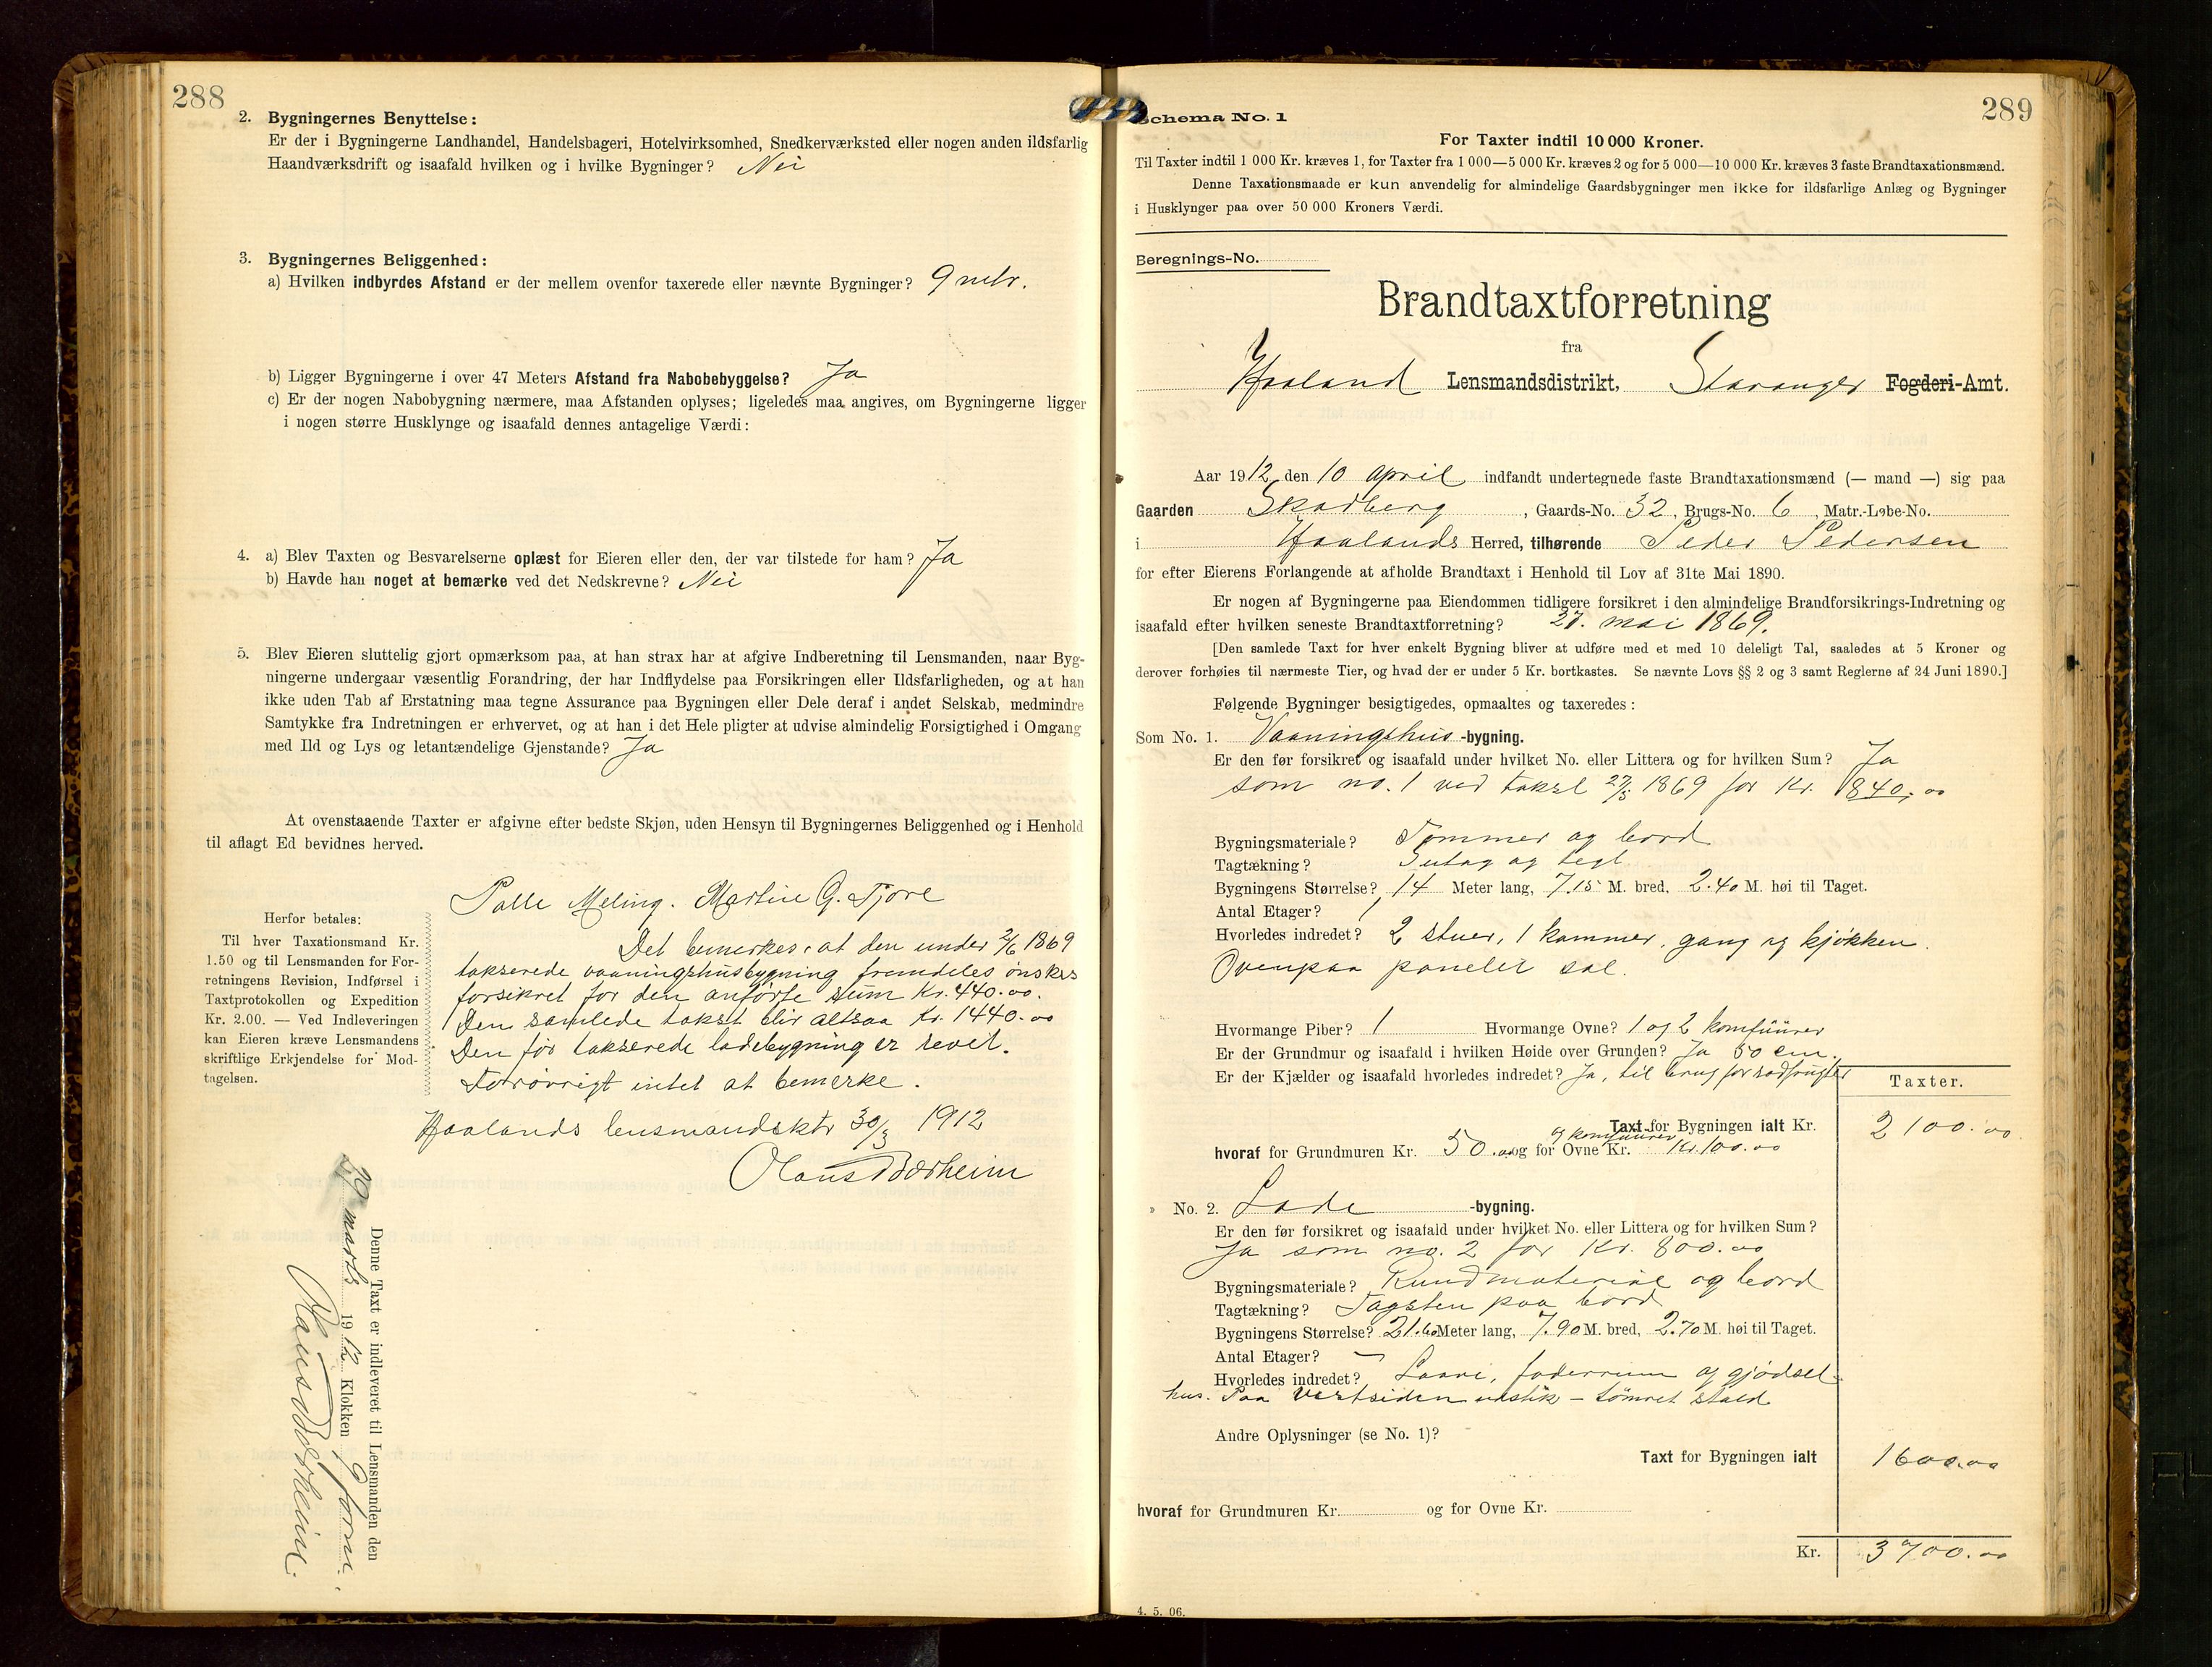 288
2. Bygningernes Benyttelse:
Er der i Bygningerne Landhandel, Handelsbageri, Hotelvirksomhed, Snedkerværksted eller nogen anden ildsfarlig
Haandværksdrift og isaafald hvilken og i hvilke Bygninger? Nei
3. Bygningernes Beliggenhed:
a) Hvilken indbyrdes Afstand er der mellem ovenfor taxerede eller nævnte Bygninger? 9 mtr.
b) Ligger Bygningerne i over 47 Meters Afstand fra Nabobebyggelse? Ja
c) Er der nogen Nabobygning nærmere, maa Afstanden oplyses; ligeledes maa angives, om Bygningerne ligger
i nogen større Husklynge og isaafald dennes antagelige Værdi:
4. a) Blev Taxten og Besvarelserne oplæst for Eieren eller den, der var tilstede for ham? Ja
b) Havde han noget at bemærke ved det Nedskrevne? Nei
5. Blev Eieren sluttelig gjort opmærksom paa, at han strax har at afgive Indberetning til Lensmanden, naar Byg-
ningerne undergaar væsentlig Forandring, der har Indflydelse paa Forsikringen eller Ildsfarligheden, og at han
ikke uden Tab af Erstatning maa tegne Assurance paa Bygningen eller Dele deraf i andet Selskab, medmindre
Samtykke fra Indretningen er erhvervet, og at han i det Hele pligter at udvise almindelig Forsigtighed i Omgang
med Ild og Lys og letantændelige Gjenstande? Ja
At ovenstaaende Taxter er afgivne efter bedste Skjøn, uden Hensyn til Bygningernes Beliggenhed og i Henhold
til aflagt Ed bevidnes herved.
Palle Meling. Martin G. Tjore
Herfor betales:
Til hver Taxationsmand Kr.
1.50 og til Lensmanden for For-
retningens Revision, Indførsel i
Taxtprotokollen og Expedition
Kr. 2.00. — Ved Indleveringen
kan Eieren kræve Lensmandens
skriftlige Erkjendelse for Mod-
tagelsen.
Det bemerkes, at den under 2/6 1869
takserede vaaningshusbygning fremdeles ønskes
forsikret for den anførte sum Kr. 440.00.
Den samlede takst blir altsaa Kr. 1440.00
Den før takserede ladebygning er revet.
Forøvrigt intet at bemerke.
Haalands lensmandsktr 30/3 1912
Olaus Børheim
Denne Taxt er indleveret til Lensmanden den
29 marts 1912 Klokken 9 form.
Olaus Børheim.
289
Schema No. 1
For Taxter indtil 10 000 Kroner.
Til Taxter indtil 1 000 Kr. kræves 1, for Taxter fra 1 000—5 000 Kr. kræves 2 og for 5 000—10 000 Kr. kræves 3 faste Brandtaxationsmænd.
Denne Taxationsmaade er kun anvendelig for almindelige Gaardsbygninger men ikke for ildsfarlige Anlæg og Bygninger
i Husklynger paa over 50 000 Kroners Værdi.
Beregnings-No.
Brandtaxtforretning
fra
Haaland Lensmandsdistrikt, Stavanger Fogderi-Amt.
Aar 1912 den 10 april indfandt undertegnede faste Brandtaxationsmænd (— mand —) sig paa
Gaarden Skadberg, Gaards-No. 32, Brugs-No. 6, Matr.-Løbe-No.
i Haalands Herred, tilhørende Peder Pedersen
for efter Eierens Forlangende at afholde Brandtaxt i Henhold til Lov af 31te Mai 1890.
Er nogen af Bygningerne paa Eiendommen tidligere forsikret i den almindelige Brandforsikrings-Indretning og
isaafald efter hvilken seneste Brandtaxtforretning? 27. mai 1869.
[Den samlede Taxt for hver enkelt Bygning bliver at udføre med et med 10 deleligt Tal, saaledes at 5 Kroner og
derover forhøies til nærmeste Tier, og hvad der er under 5 Kr. bortkastes. Se nævnte Lovs §§ 2 og 3 samt Reglerne af 24 Juni 1890.]
Følgende Bygninger besigtigedes, opmaaltes og taxeredes:
Som No. 1. Vaaningshus-bygning.
Er den før forsikret og isaafald under hvilket No. eller Littera og for hvilken Sum? Ja
som no. 1 ved takst 27/5 1869 for Kr. 840,00
Bygningsmateriale? Tømmer og bord
Tagtækning? Sutag og tegl
Bygningens Størrelse? 14 Meter lang, 7.15 M. bred, 2.40 M. høi til Taget.
Antal Etager? 1
Hvorledes indredet? 2 stuer, 1 kammer, gang og kjøkken.
Ovenpaa panelet sal.
Hvormange Piber? 1 Hvormange Ovne? 1 og 2 komfüürer
Er der Grundmur og isaafald i hvilken Høide over Grunden? Ja 50 cm.
Er der Kjælder og isaafald hvorledes indredet? Ja, til brug for rodfrugter
Taxter.
Taxt for Bygningen ialt Kr. 2100.00
hvoraf for Grundmuren Kr. 50.00 og for Ovne og komfüürer Kr. Kr. 100.00
» No. 2. Lade-bygning.
Er den før forsikret og isaafald under hvilket No. eller Littera og for hvilken Sum?
Ja som no. 2 for Kr. 800.00
Bygningsmateriale? Rundmateriale og bord
Tagtækning? Tagsten paa bord
Bygningens Størrelse? 21.60 Meter lang, 7.90 M. bred, 2.70 M. høi til Taget.
Antal Etager? —
Hvorledes indredet? Laave, foderrum og gjødsel-
hus. Paa vestsiden utstik – tømret stald
Andre Oplysninger (se No. 1)?
Taxt for Bygningen ialt 1600.00
hvoraf for Grundmuren Kr. og for Ovne Kr.
Kr. 3700.00
4. 5. 06.